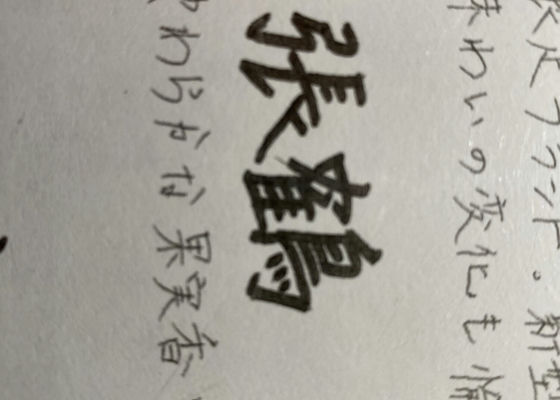 定ブランド。新
味わいの変化も
張鶴
やわらかな果実香